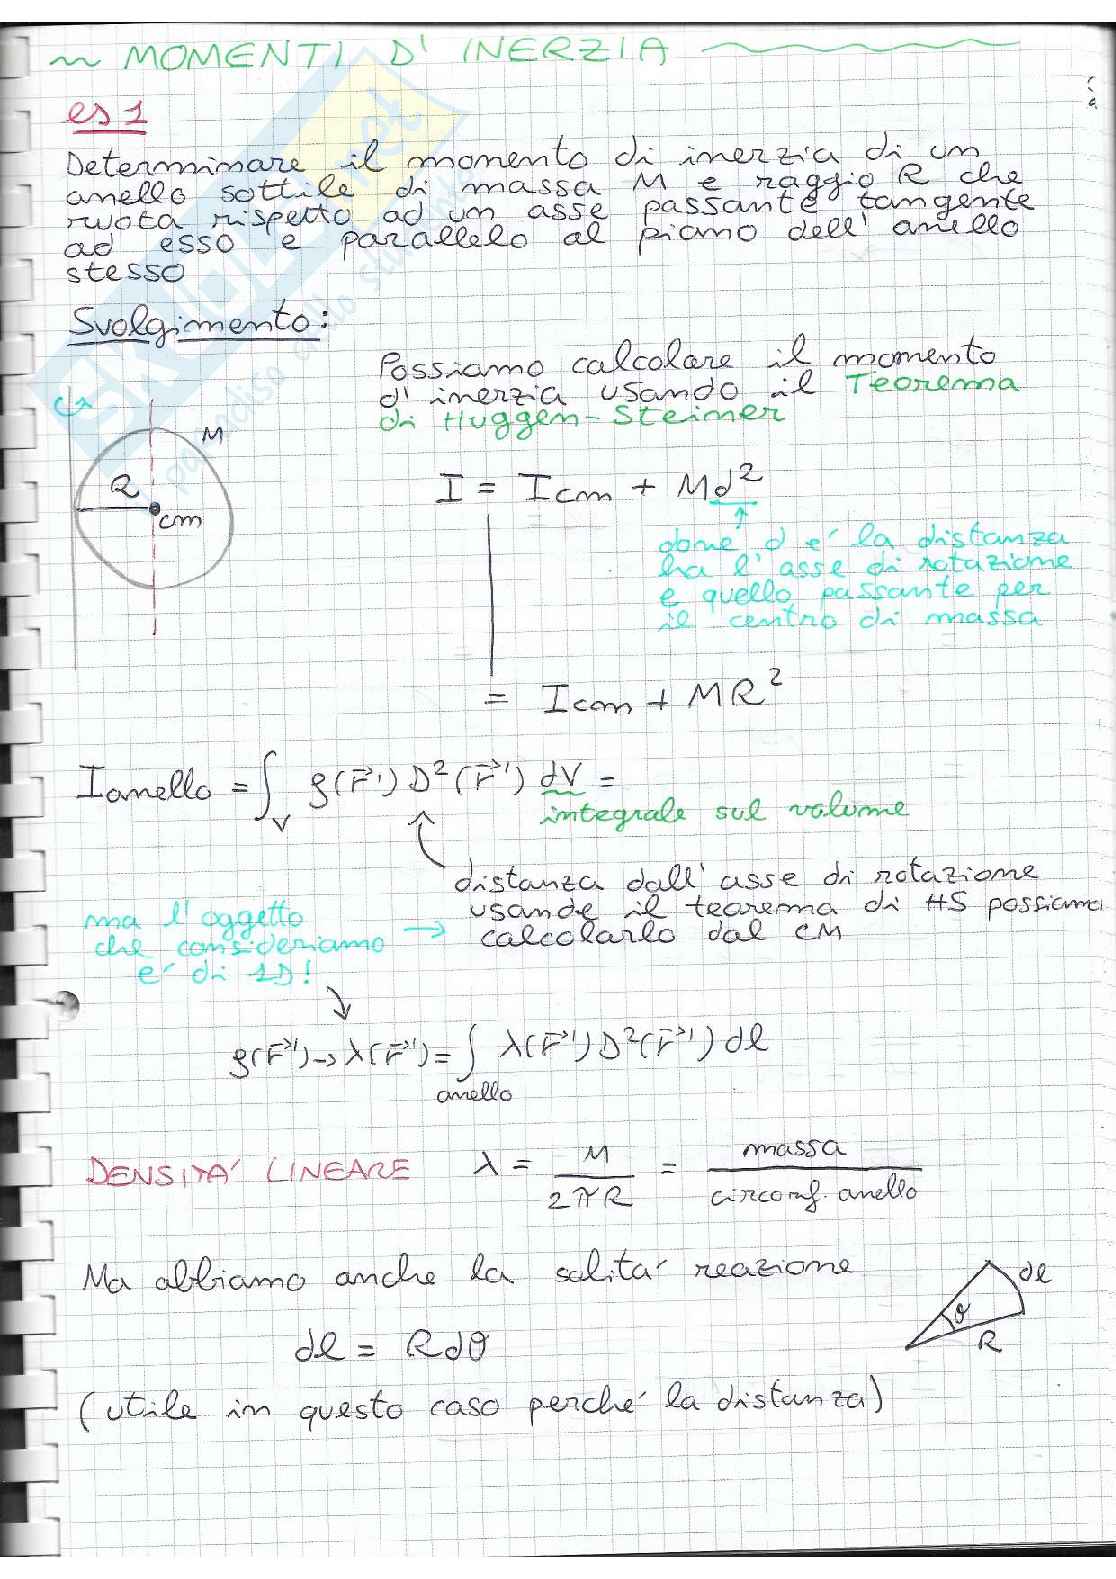 ~ MOMENTI D' INERZIA
es 1
Determinare il momento di inerzia di un
anello sottile di massa M e raggio R che
ruota rispetto ad un asse passante tangente
ad esso e parallelo al piano dell' anello
stesso
Svolgimento:
Possiamo calcolare il momento
d' inerzia usando il Teorema
di Huggen-Steiner
M
R
cm
I = Icm + Md²
dove d e' la distanza
tra l' asse di rotazione
e quello passante per
il centro di massa
= Icm + MR²
Ianello = ∫_V ρ(r⃗') D²(r⃗') dV =
integrale sul volume
distanza dall' asse di rotazione
usando il teorema di HS possiamo
calcolarlo dal CM
ma l' oggetto
che consideriamo →
e' di 1D!
ρ(r⃗') → λ(r⃗') = ∫_anello λ(r⃗') D²(r⃗') dl
DENSITA' LINEARE λ = M / 2πR = massa / circonf. anello
Ma abbiamo anche la solita' reazione
dl
θ
R
dl = R dθ
(utile in questo caso perche' la distanza)